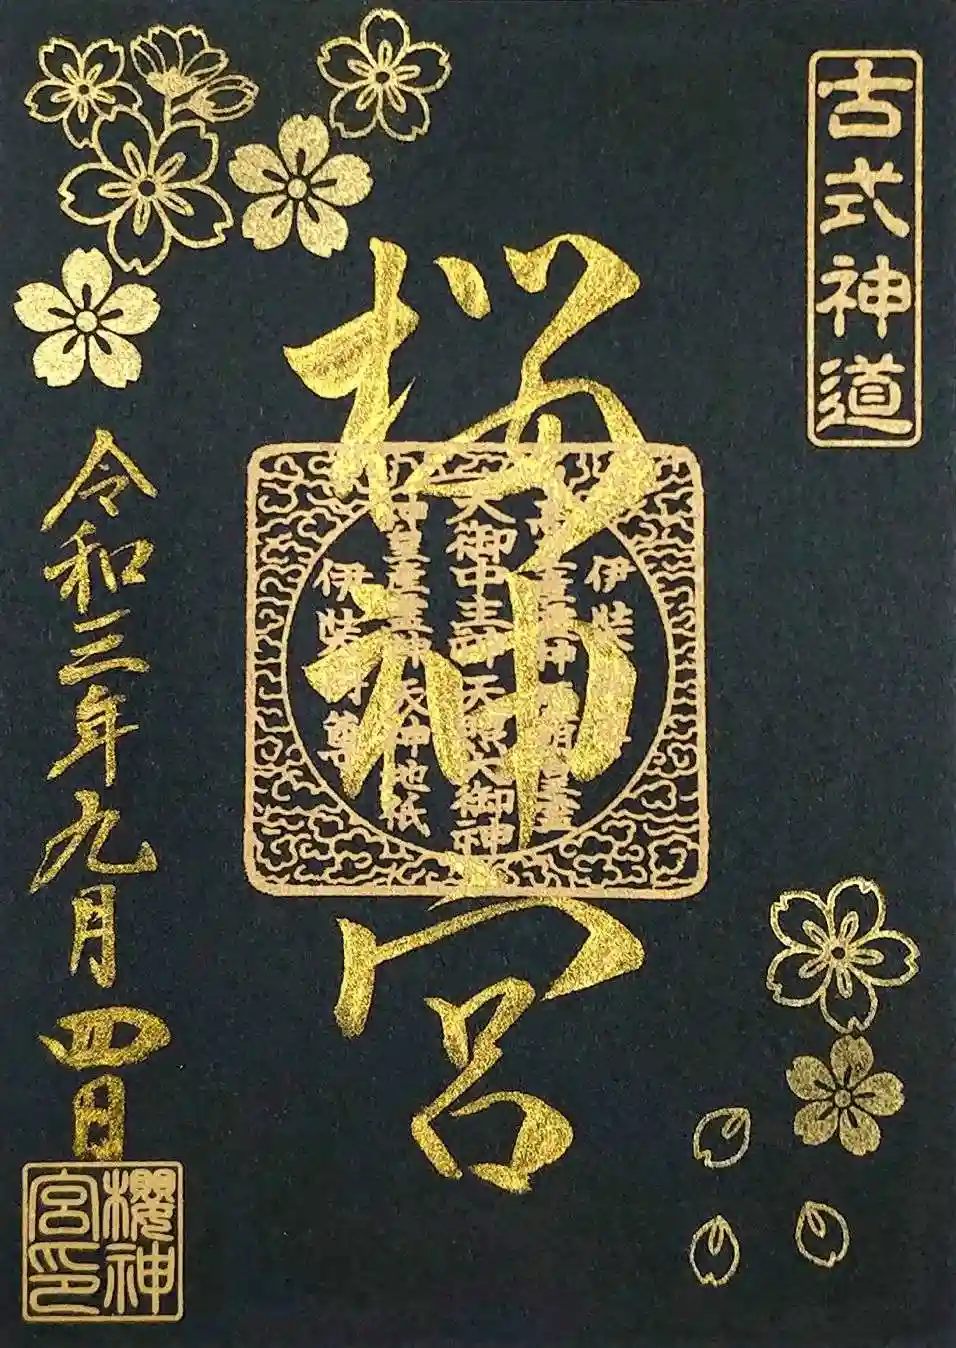 古式神道
桜神宮
伊弉
天御中主神 天照大御神
神皇産霊神 天神地祇
伊弉 尊
令和三年九月四日
櫻神
宮印